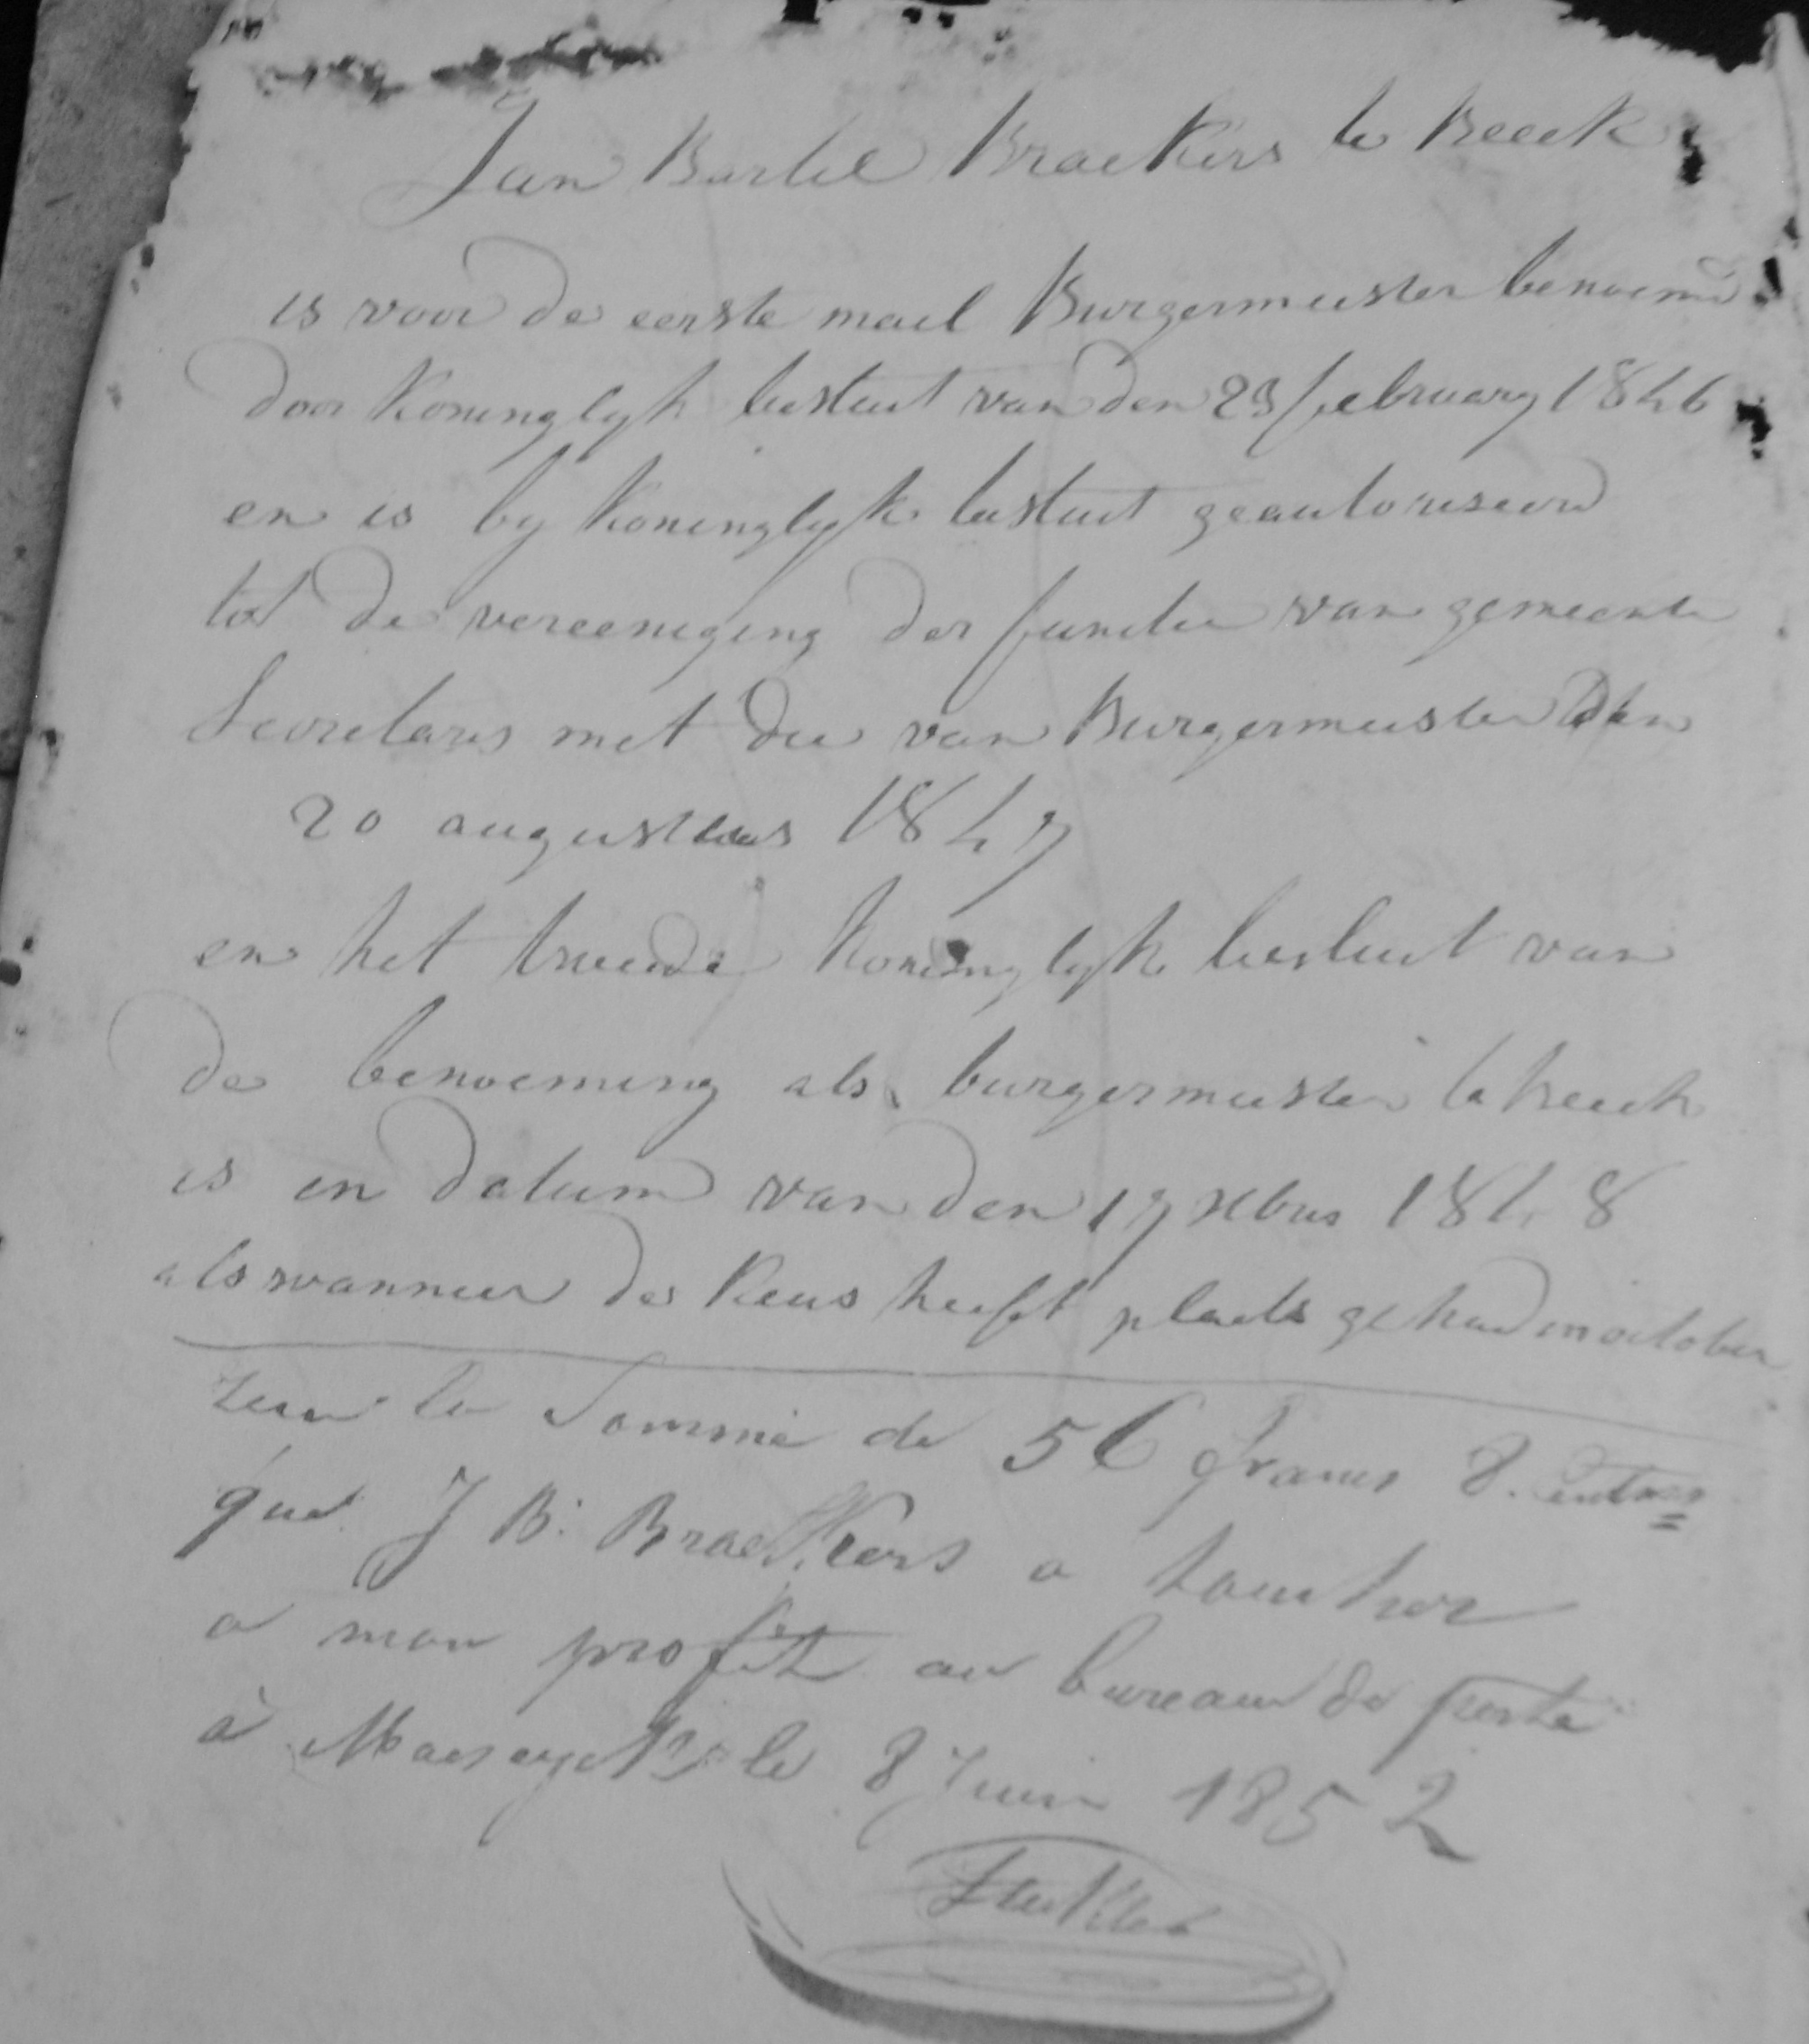 Jan Bartel Braekers te Beeck
is voor de eerste mael Burgermeester benoemd
door Koninglyk besluit van den 23 february 1846
en is by Koninglyk besluit geautoriseerd
tot de vereeniging der functie van gemeente
Secretaris met die van Burgermeester den
20 augustus 1847
en het tweede Koninglyk besluit van
de benoeming als burgermeester te beeck
is in datum van den 17 xbris 1848
als wanneer de Keus heeft plaets gehad in october
la Somme de 56 francs 8. centimes
que J B. Braekers a toucher
a mon profit au bureau de poste
à Maeseyck le 8 Juin 1852